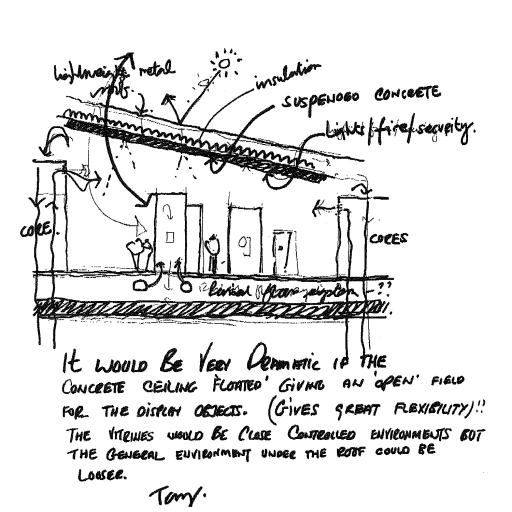 lightweight metal
roof.
insulation
SUSPENDED CONCRETE
Lights/fire/security.
CORE.
CORES
floor ??
IT WOULD BE VERY DRAMATIC IF THE
CONCRETE CEILING 'FLOATED' GIVING AN 'OPEN' FIELD
FOR THE DISPLAY OBJECTS. (GIVES GREAT FLEXIBILITY)!!
THE VITRINES WOULD BE CLOSE CONTROLLED ENVIRONMENTS BUT
THE GENERAL ENVIRONMENT UNDER THE ROOF COULD BE
LOOSER.
Tony.